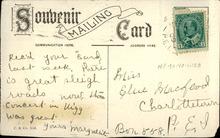 Souvenir
MAILING
Card
COMMUNICATION HERE.
ADDRESS HERE.
Rec'd your Card
last week. Here
is great sleigh
roads now. The
Concert in Uigg
was great.
Yours Marguerite
Miss
Charlottetown
Box 848. P.E.I.